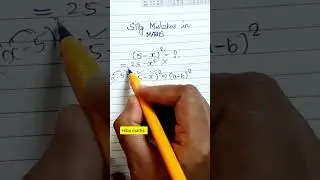 Silly Mistakes in
MATHS
(5-x)² = ?
= 25-x² ×
5-x)² → (a-b)²
Hiba maths
= 25